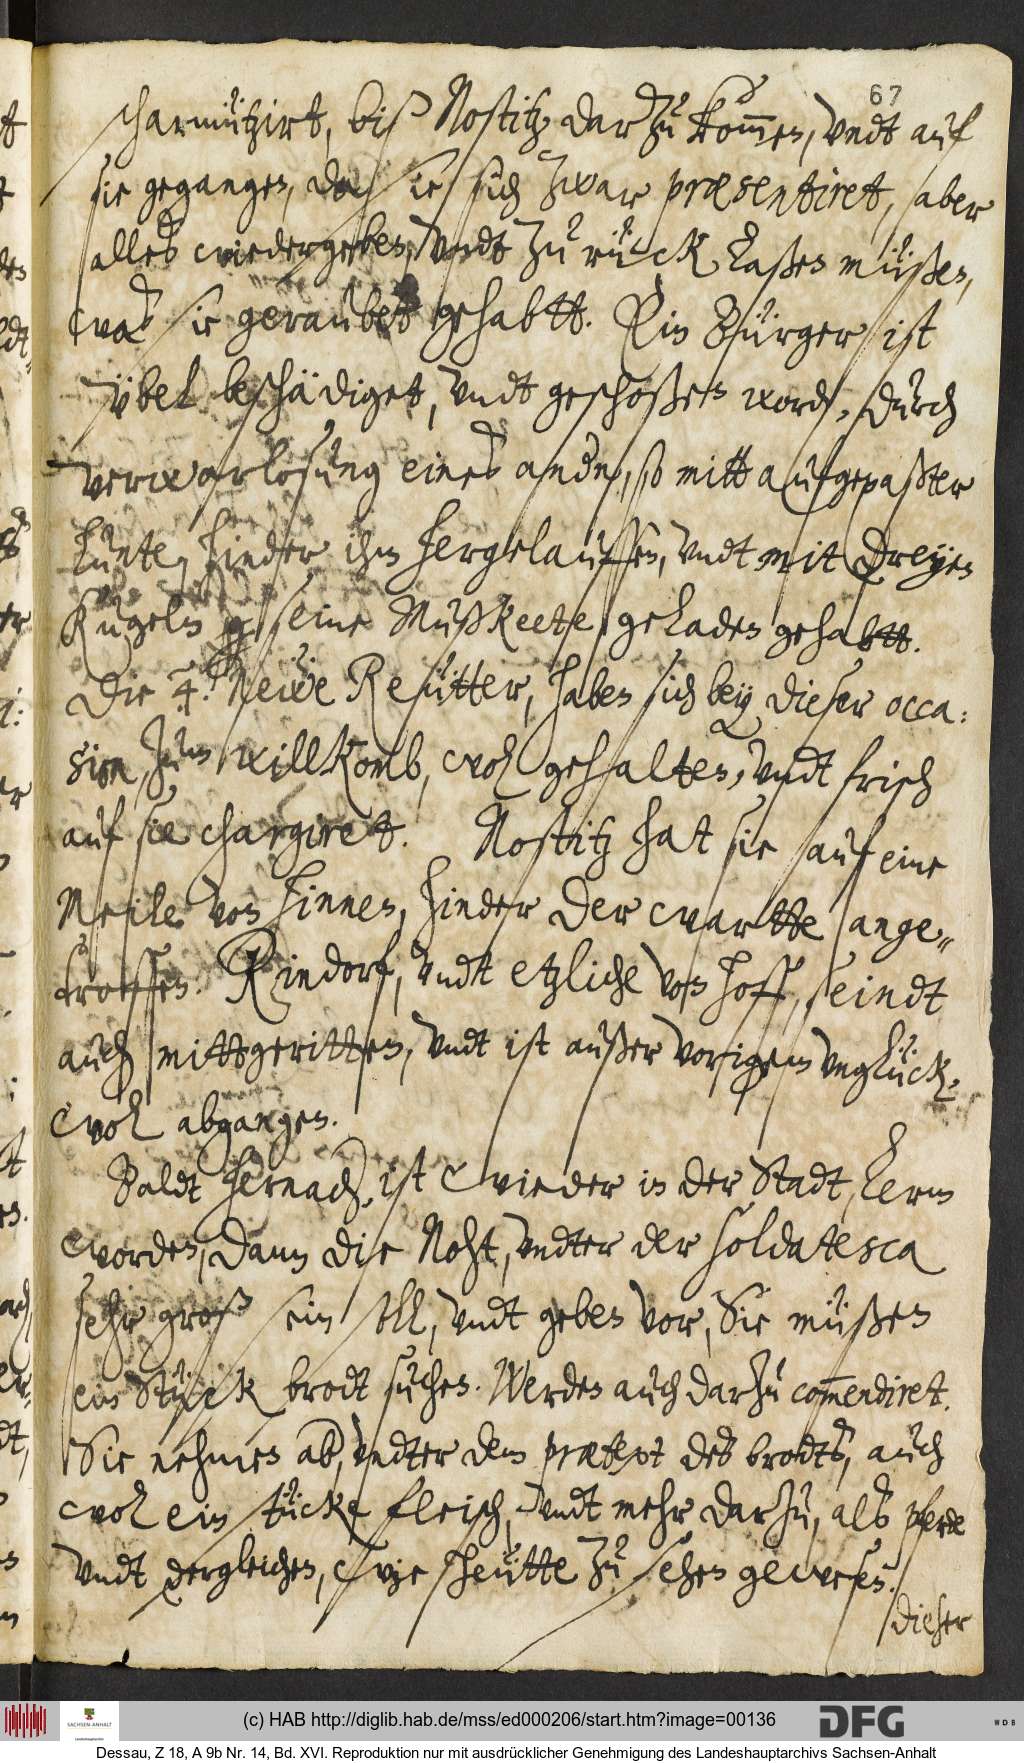 67
scharmützirt, biß Nostitz darzu kommen, vndt auf
sie gegangen, da sie sich zwar præsentiret, aber
alles wiedergeben, vndt zu rück laßen müßen,
waß sie geraubett gehabtt. Ein Bürger ist
übel beschädiget, vndt geschoßen word, durch
verwarlosung eines andn, so mitt aufgepaßter
Lunte, hinder ihm hergelauffen, vndt mit Dreyen
Kugeln seine Mußkeete geladen gehabtt.
Die 4. Newe Reütter, haben sich bey dieser occa:
sion, zum willkomb, wol gehalten, vndt frisch
auf sie chargiret. Nostitz hat sie auf eine
Meile von hinnen, hinder der wartte ange„
troffen. Rindorf, vndt etzliche von hoff, seindt
auch mittgeritten, vndt ist außer vorigem vnglück,
wol abgangen.
Baldt hernach, ist wieder in der Stadt, Lerm
worden, dann die Noht, vndter der soldatesca
sehr groß sein soll, vndt geben vor, Sie müßen
ein Stück brodt suchen. Werden auch darzu commendiret.
Sie nehmen ab, vndter dem prætext deß brodts, auch
wol ein stücke fleisch, vndt mehr darzu, alß pferde
vndt dergleichen, wie heütte zu sehen gewesen.
dieser
(c) HAB http://diglib.hab.de/mss/ed000206/start.htm?image=00136
SACHSEN-ANHALT
DFG
WDB
Dessau, Z 18, A 9b Nr. 14, Bd. XVI. Reproduktion nur mit ausdrücklicher Genehmigung des Landeshauptarchivs Sachsen-Anhalt